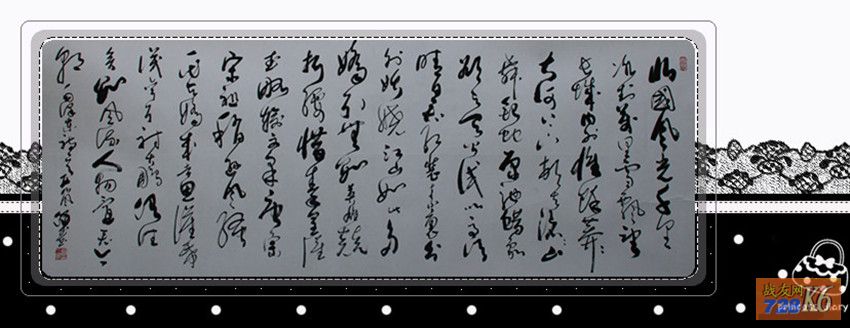 北國风光千里
冰封万里雪飘望
长城内外惟余莽莽
大河上下顿失滔滔山
舞银蛇原驰蜡象
欲与天公试比高须
晴日看红装素裹分
外妖娆江山如此多
娇引无数英雄竞
折腰惜秦皇汉
武略输文采唐宗
宋祖稍逊风骚
一代天骄成吉思汗
只识弯弓射大雕俱往
矣数风流人物还看今
朝 毛泽东词
战友网
K6